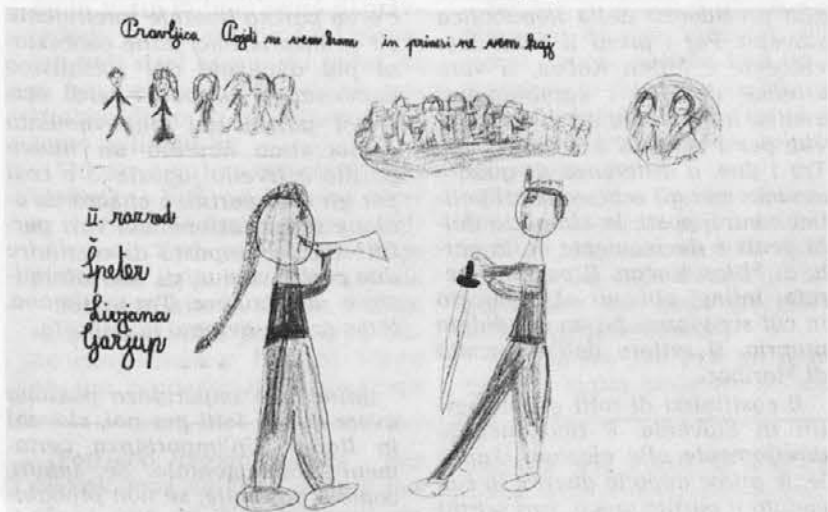 Pravljica Pojdi ne vem kam in prinesi ne vem kaj
II. razred
Špeter
Luzana
Gorjup